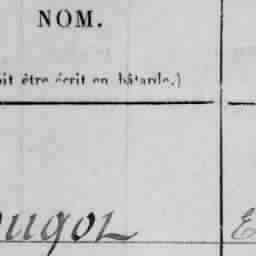 NOM.
oit être écrit en bâtarde.)
ougol E